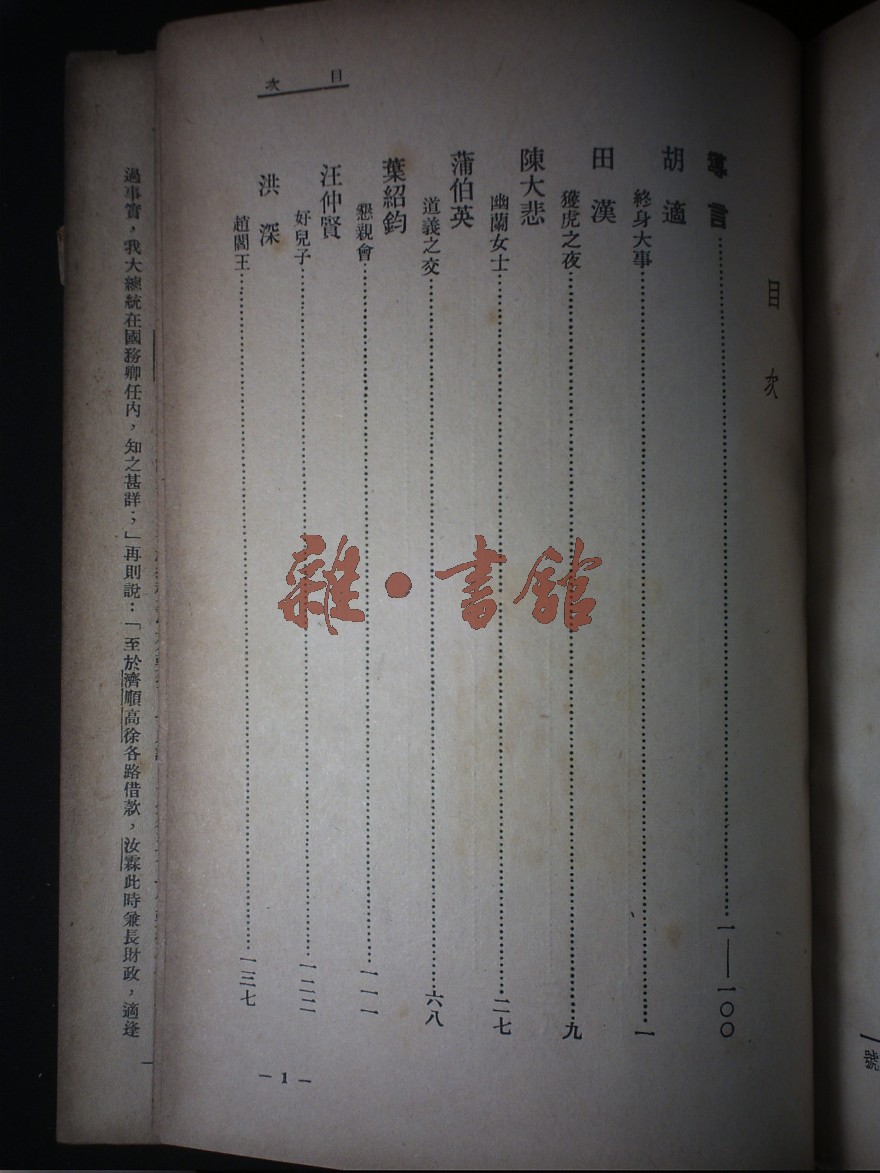 目次
導言……一——一〇〇
胡適
終身大事……一
田漢
獲虎之夜……九
陳大悲
幽蘭女士……二七
蒲伯英
道義之交……六八
葉紹鈞
懇親會……一一一
汪仲賢
好兒子……一二二
洪深
趙閻王……一三七
目次
— 1 —
過事實，我大總統在國務卿任內，知之甚詳；」再則說：「至於濟順高徐各路借款，汝霖此時兼長財政，適逢
號
雜·書館